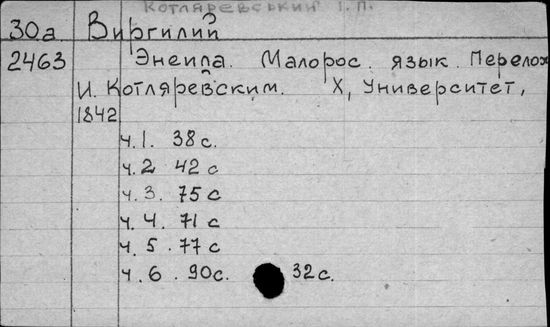 Котляревський І. П.
30а Виргилий
2463 Энеида. Малорос. язык. Перелож
И. Котляревским. Х, Университет,
1842
ч. 1. 38 с.
ч. 2 42 с
ч. 3. 75 с
ч. 4. 71 с
ч. 5. 77 с
ч. 6. 90 с. 32 с.